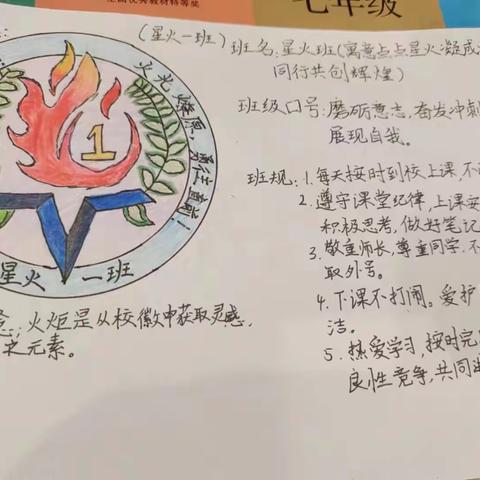 全国优秀教材特等奖
七年级
(星火一班)
班名:星火班(寓意点点星火凝成
同行共创辉煌)
班级口号:磨砺意志,奋发冲刺
展现自我。
班规:1.每天按时到校上课,不
2.遵守课堂纪律,上课
积极思考,做好笔记
3.敬重师长,尊重同学,不
取外号。
4.下课不打闹。爱护
洁。
5.热爱学习,按时完
良性竞争,共同
火光燎原 勇往直前!
1
星火一班
意:火炬是从校徽中获取灵感,
之元素。